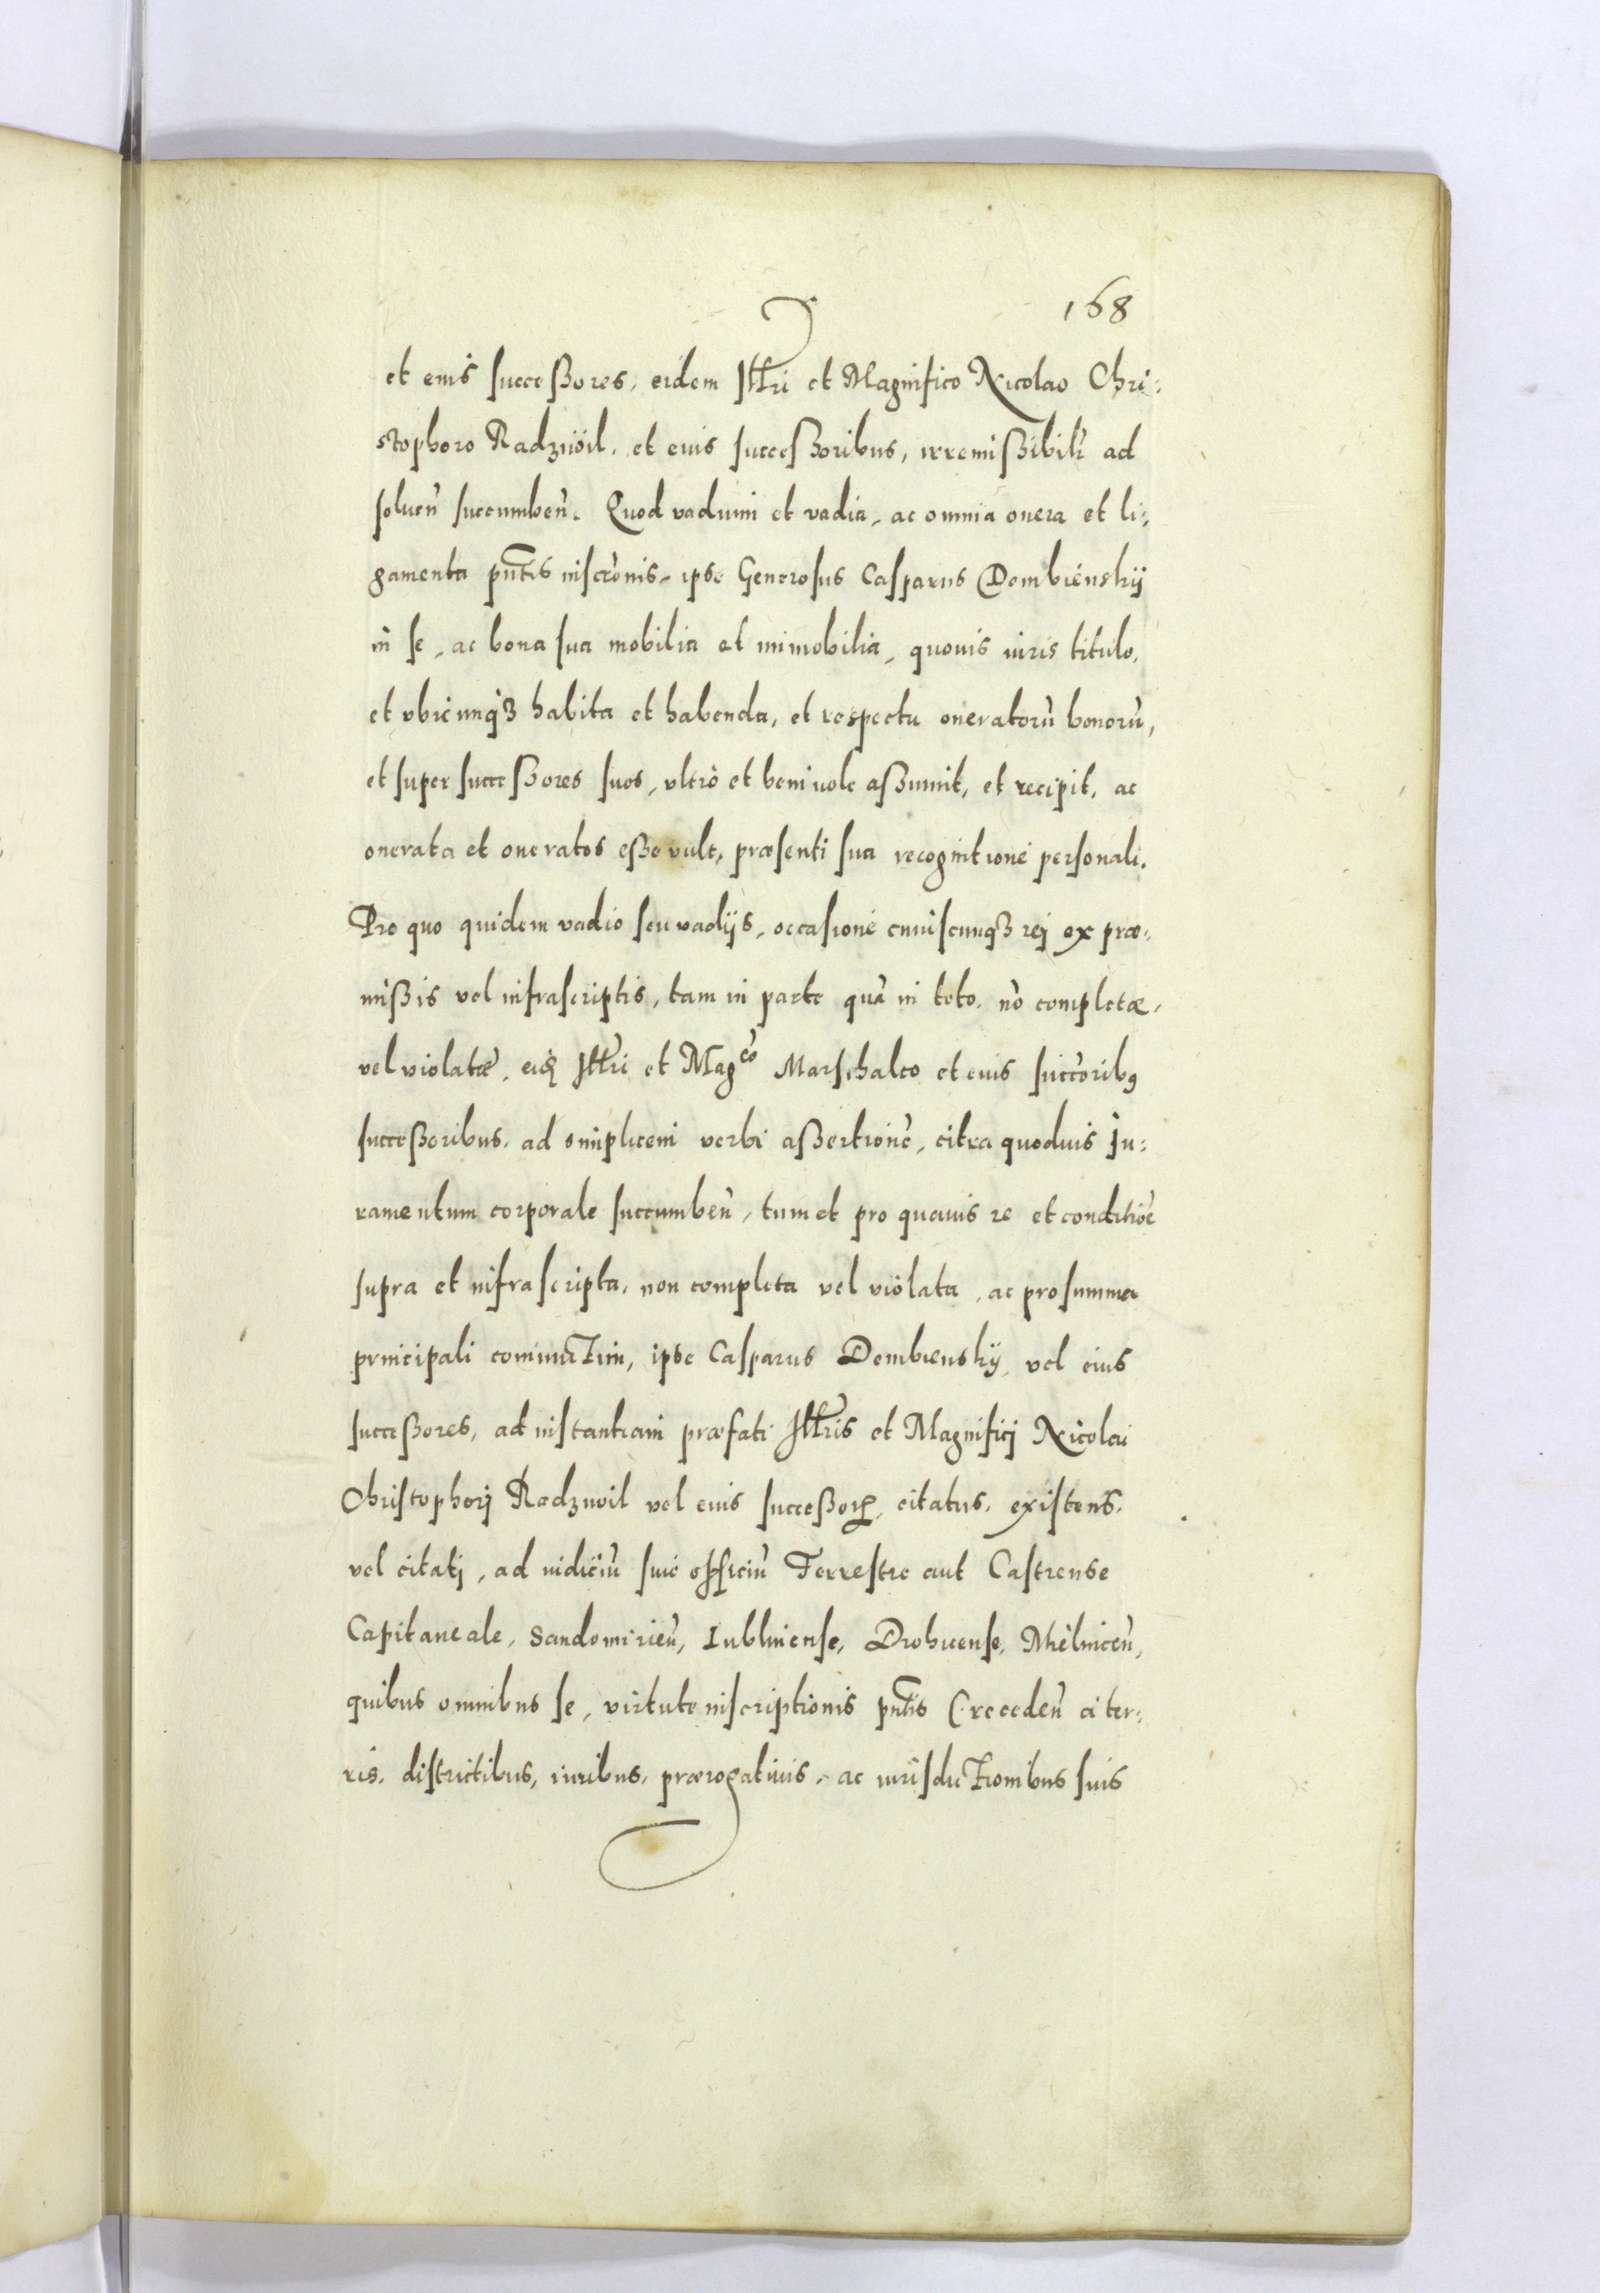 168
et eius successores, eidem Illri et Magnifico Nicolao Chri:
stophoro Radziwil, et eius successoribus, irremissibilr ad
soluen̄ succumben̄. Quod vadium et vadia, ac omnia onera et li:
gamenta pn̄tis inscrōnis, ipse Generosus Casparus Dembienskÿ
in se, ac bona sua mobilia et immobilia, quouis iuris titulo,
et vbicunqȝ habita et habenda, et respectu oneratorū bonorū,
et super successores suos, vltrò et beniuole assumit, et recipit, ac
onerata et oneratos esse vult, præsenti sua recognitione personali.
Pro quo quidem vadio seu vadijs, occasione cuiuscunqȝ rej ex præ:
missis vel infrascriptis, tam in parte quā in toto, nō completæ,
vel violatæ, Illri et Magco Marschalco et eius succōribꝯ
successoribus, ad simplicem verbi assertionē, citra quoduis Ju:
ramentum corporale succumben̄, tum et pro quauis re et conditiōe
supra et infrascripta, non completa vel violata, ac pro summa
principali coniunctim, ipse Casparus Dembienskÿ, vel eius
successores, ad instantiam præfati Illris et Magnificj Nicolai
Christophorj Radziwil vel eius successorꝝ, citatus, existens,
vel citatj, ad iudiciū siue officiū Terrestre aut Castrense
Capitaneale, Sandomirien̄, Lubliniense, Drohicense, Mielnicen̄,
quibus omnibus se, virtute inscriptionis pn̄tis (receden̄ a ter:
ris, districtibus, iuribus, prærogatiuis, ac iurisdictionibus suis